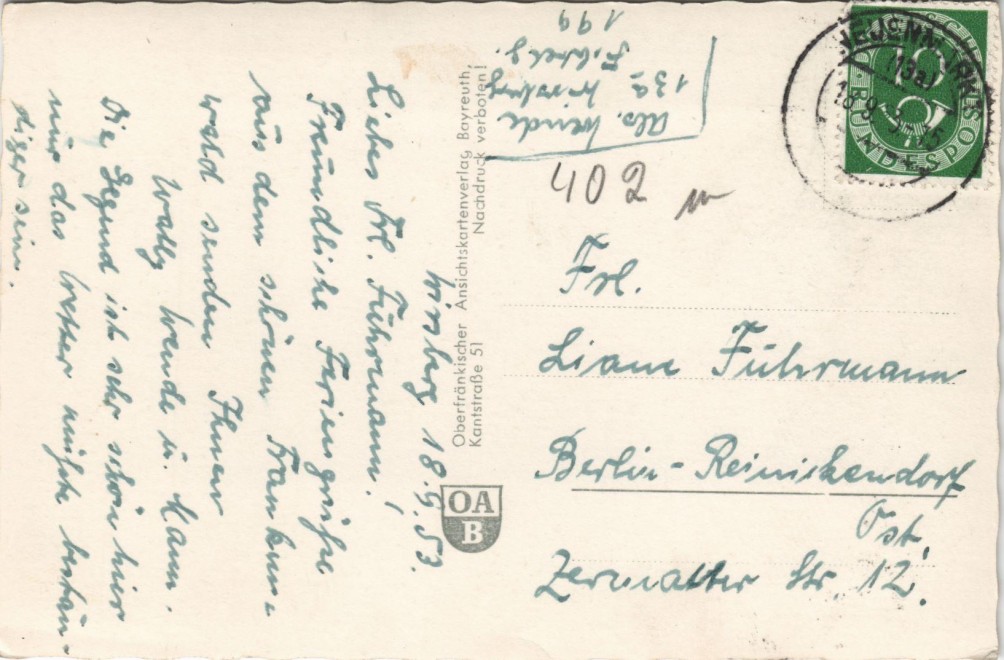 Wirsberg 18.9.53.
Liebes Frl. Fuhrmann!
Freundliche Feriengrüße
aus dem schönen Franken-
wald senden Ihnen
Wally Wende u. Mann.
Die Gegend ist sehr schön hier
nur das Wetter müßte bestän-
diger sein.
Abs. Wende
13a Wirsberg
199
Oberfränkischer Ansichtskartenverlag Bayreuth,
Kantstraße 51 Nachdruck verboten!
OA
B
402
10
DEUTSCHE BUNDESPOST
(13a)
Frl.
Liane Fuhrmann
Berlin-Reinickendorf
Ost,
Zermatter Str. 12.